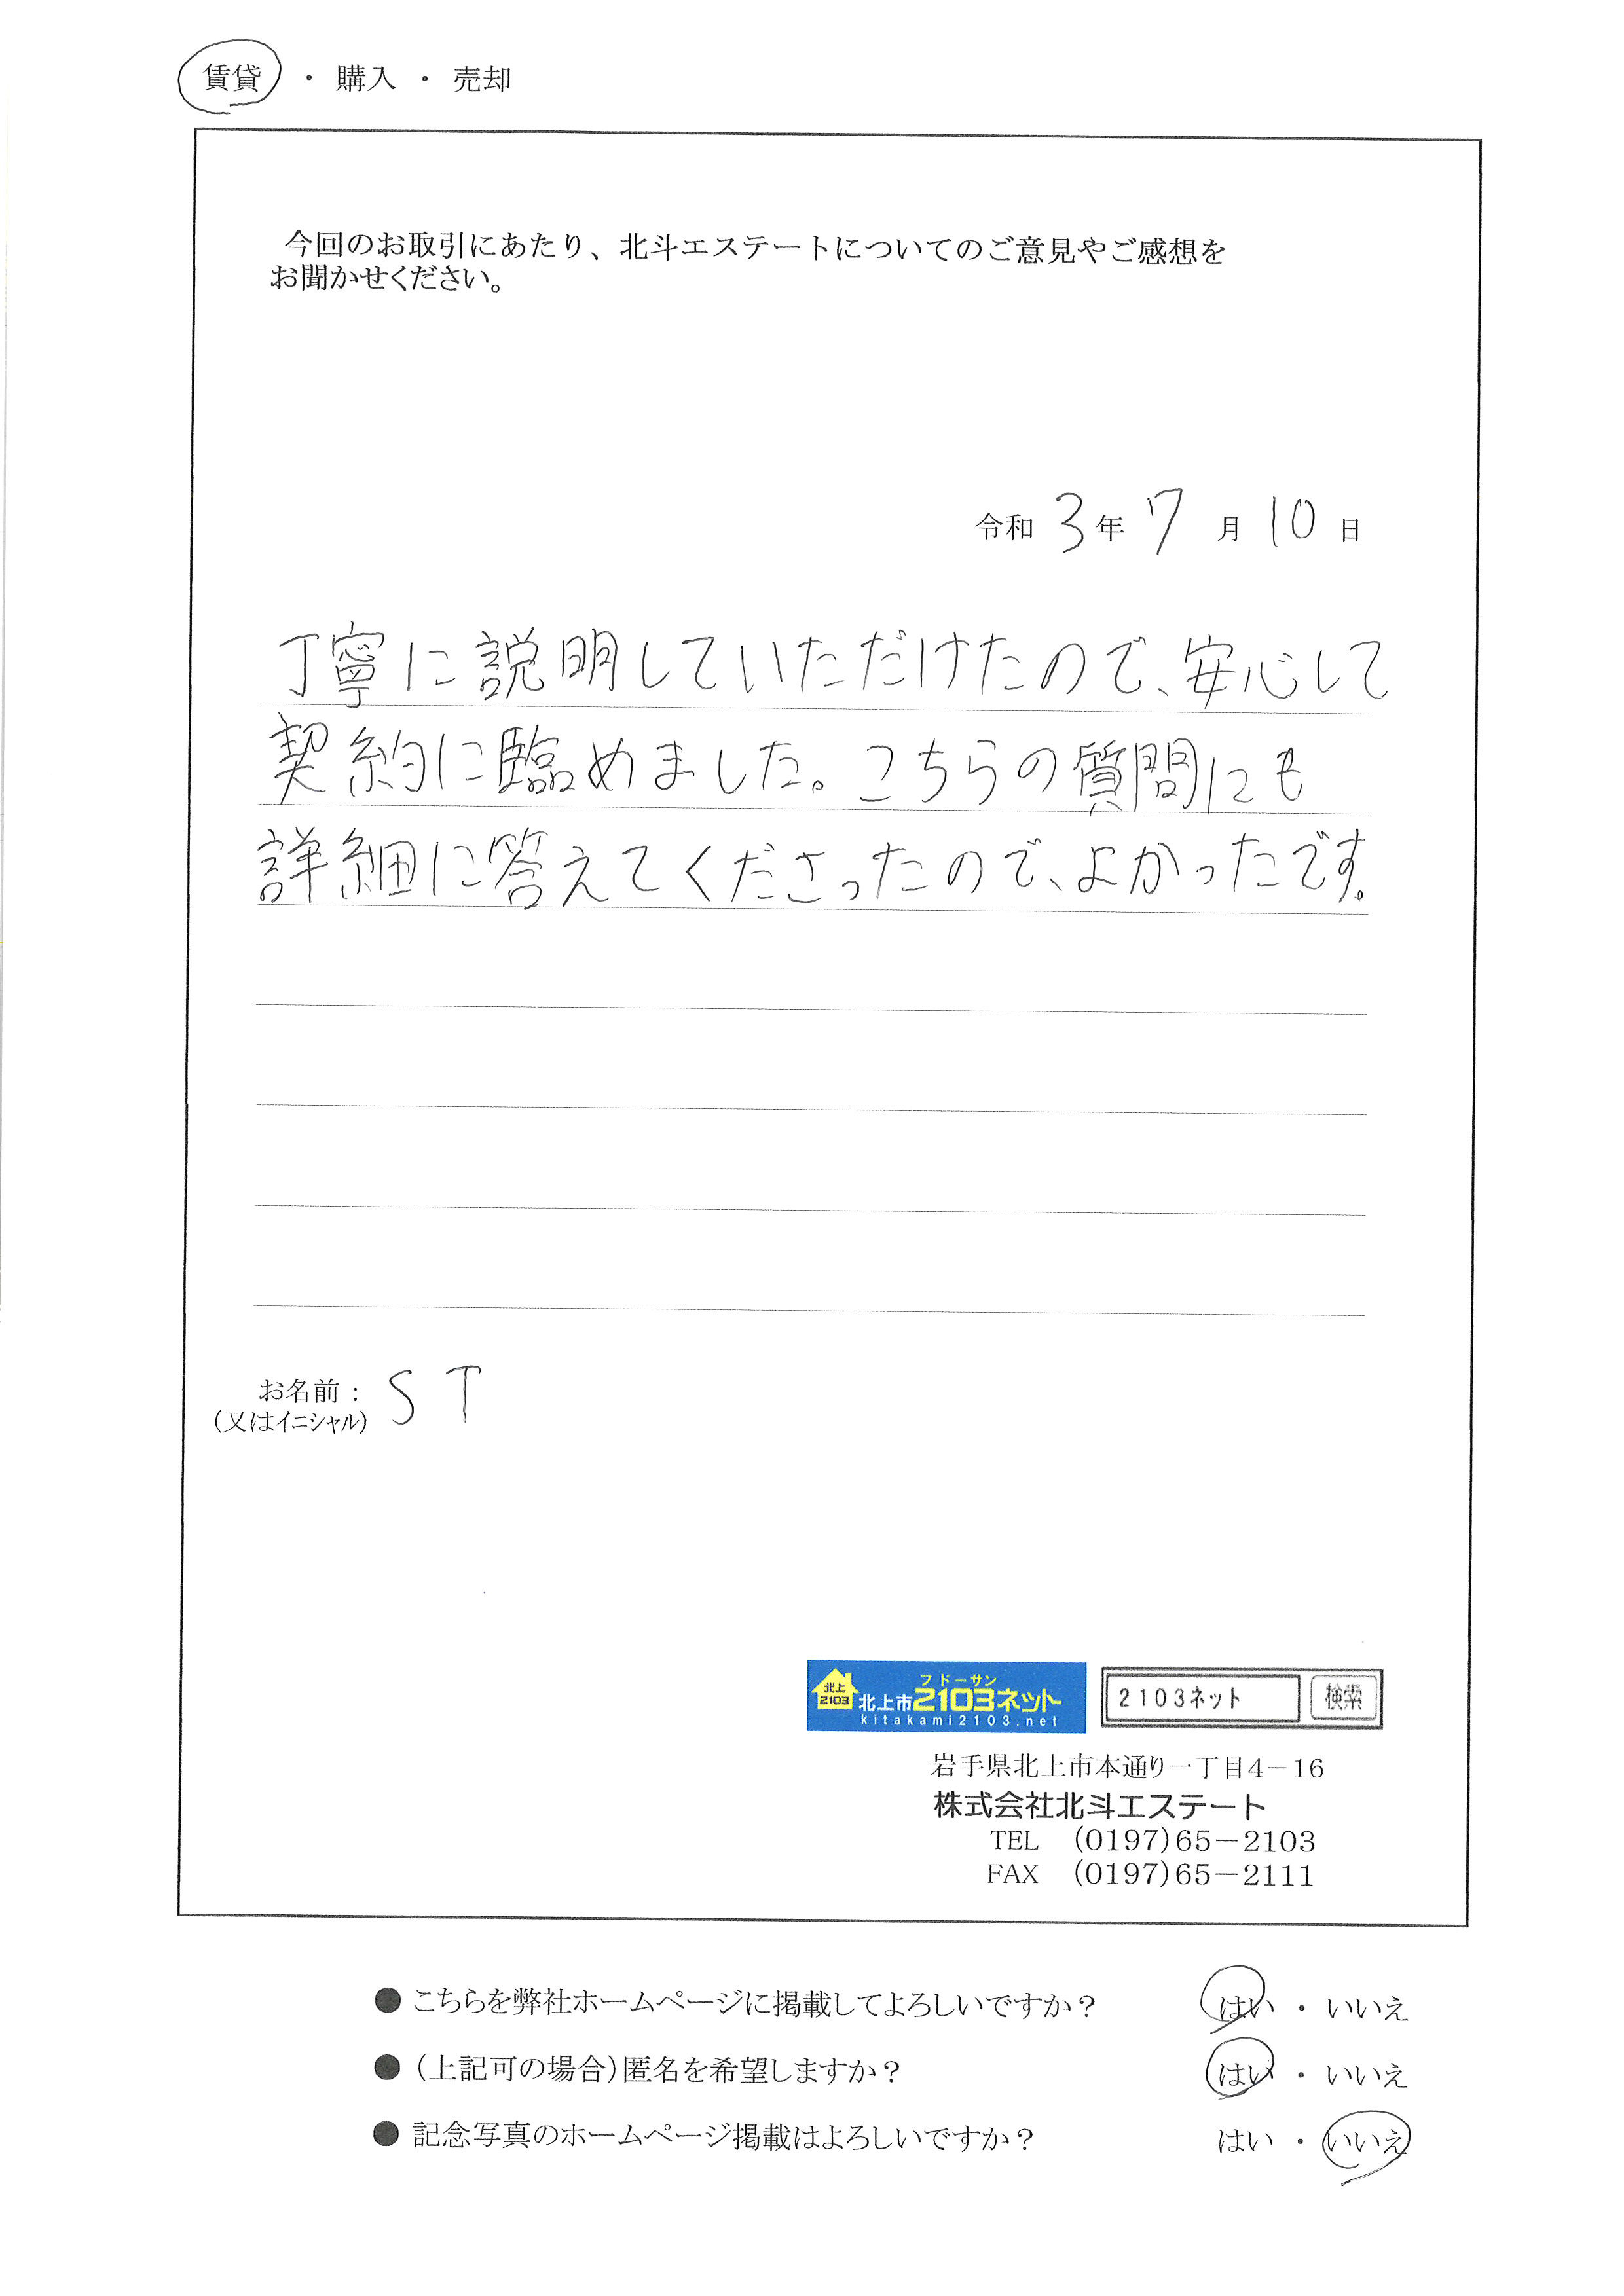 賃貸 ・ 購入 ・ 売却
今回のお取引にあたり、北斗エステートについてのご意見やご感想を
お聞かせください。
令和 3 年 7 月 10 日
丁寧に説明していただけたので、安心して
契約に臨めました。こちらの質問にも
詳細に答えてくださったので、よかったです。
お名前: S T
(又はイニシャル)
北上
2103
フドーサン
北上市2103ネット
kitakami2103.net
2103ネット 検索
岩手県北上市本通り一丁目4−16
株式会社北斗エステート
TEL (0197)65−2103
FAX (0197)65−2111
● こちらを弊社ホームページに掲載してよろしいですか? はい ・ いいえ
● (上記可の場合)匿名を希望しますか? はい ・ いいえ
● 記念写真のホームページ掲載はよろしいですか? はい ・ いいえ